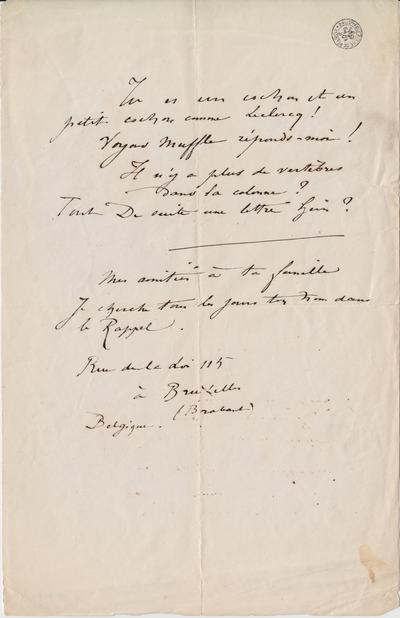 Tu es un cochon et un
petit cochon comme Leclercq !
Voyons Muffle réponds-moi !
Il n'y a plus de vertèbres
dans la colonne ?
Tout De suite une lettre hein ?
Mes amitiés à ta famille
Je cherche tous les jours ton Nom dans
le Rappel.
Rue de la Loi 115
à Bruxelles
(Brabant)
Belgique.